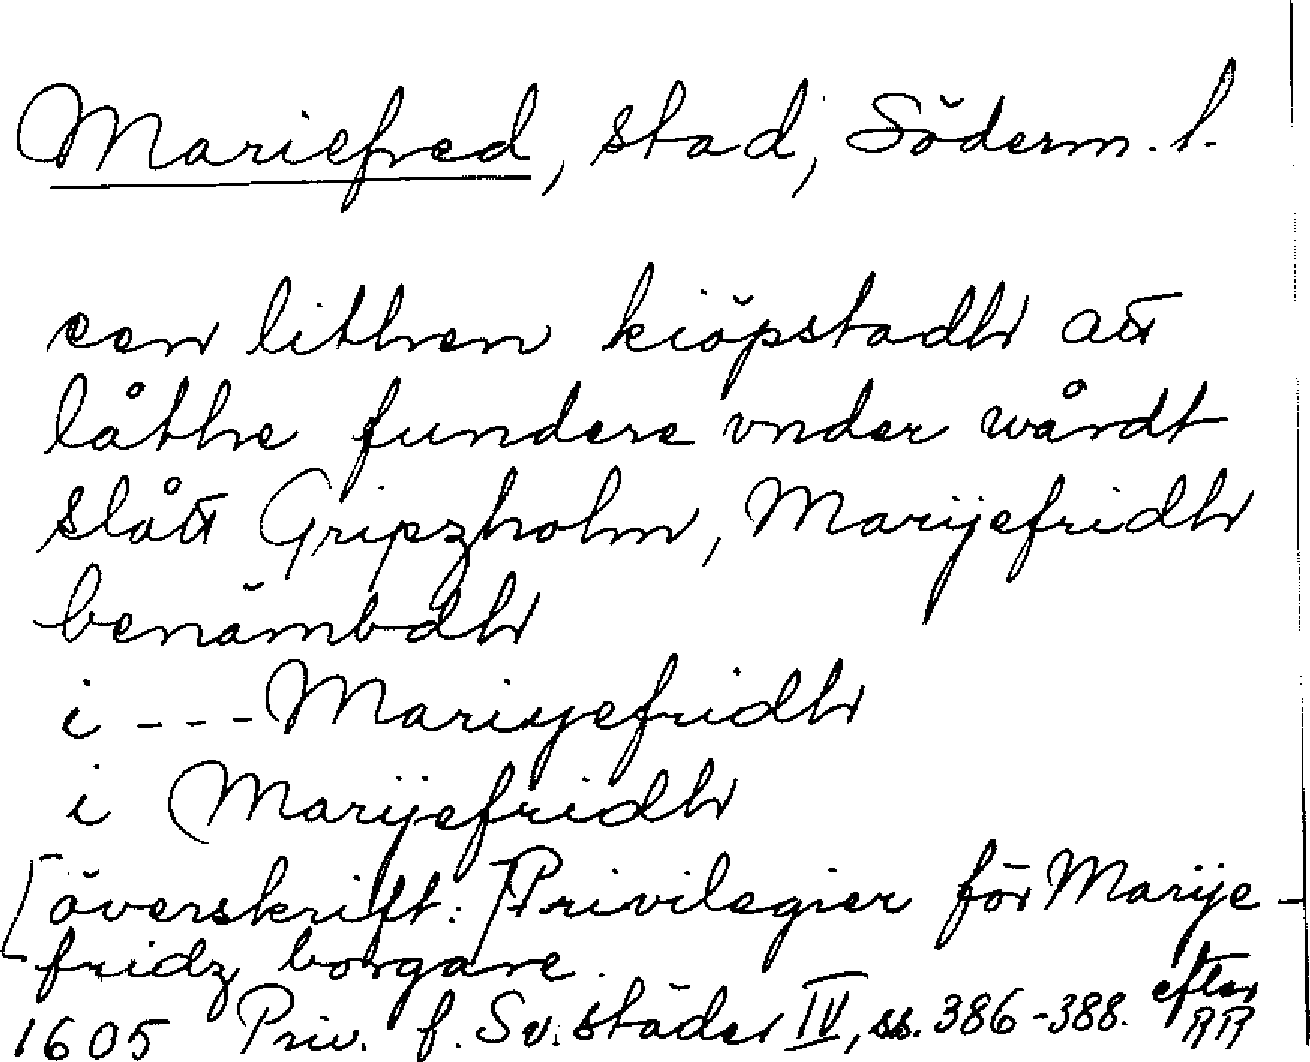 Mariefred, stad, Söderm. l.
een lithen kiöpstadh att
låthe fundere vnder wårdt
slått Gripzholm, Marijefridh
benämbdh
i --- Marijefridh
i Marijefridh
[överskrift:] Privilegier för Marije-
fridz borgare.
1605 Priv. f. Sv. städer IV, ss. 386-388. efter
RR